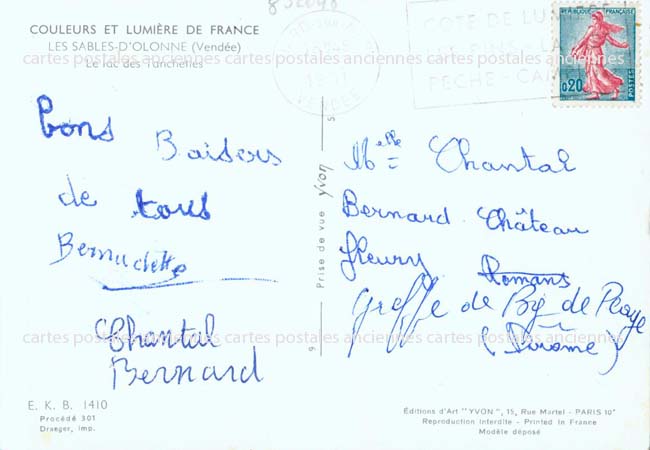 COULEURS ET LUMIÈRE DE FRANCE
LES SABLES-D'OLONNE (Vendée)
Le lac des Tanchettes
cartes postales anciennes cartes postales anciennes cartes postales anciennes
CÔTE DE LUMIÈRE
PINS - LA
PECHE - CAM
VENDÉE
REPUBLIQUE FRANÇAISE
0,20
POSTES
Bons Baisers
de tous
Bernadette
Chantal
Bernard
Prise de vue YVON
Melle Chantal
Bernard Château
fleury Romans
Greffe de Bg de Péage
(Drome)
cartes postales anciennes cartes postales anciennes cartes postales anciennes
E. K. B. 1410
Procédé 301
Draeger, imp.
Éditions d'Art "YVON", 15, Rue Martel - PARIS 10e
Reproduction interdite - Printed in France
Modèle déposé